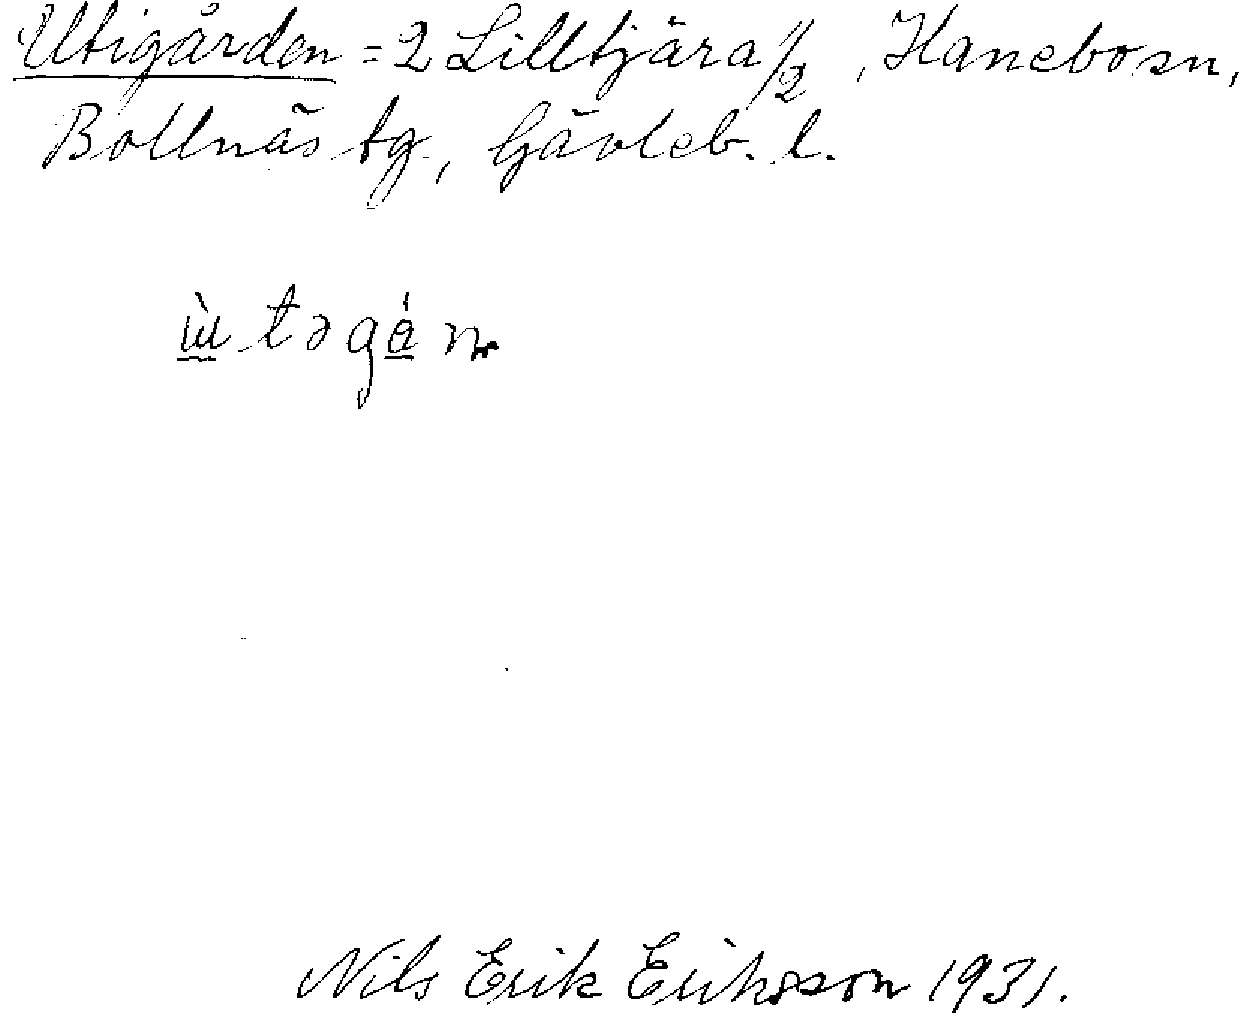 Utigården = 2 Lilltjära 1/2, Hanebo sn,
Bollnäs tg., Gävleb. l.
ɯ̀təgán
Nils Erik Eriksson 1931.